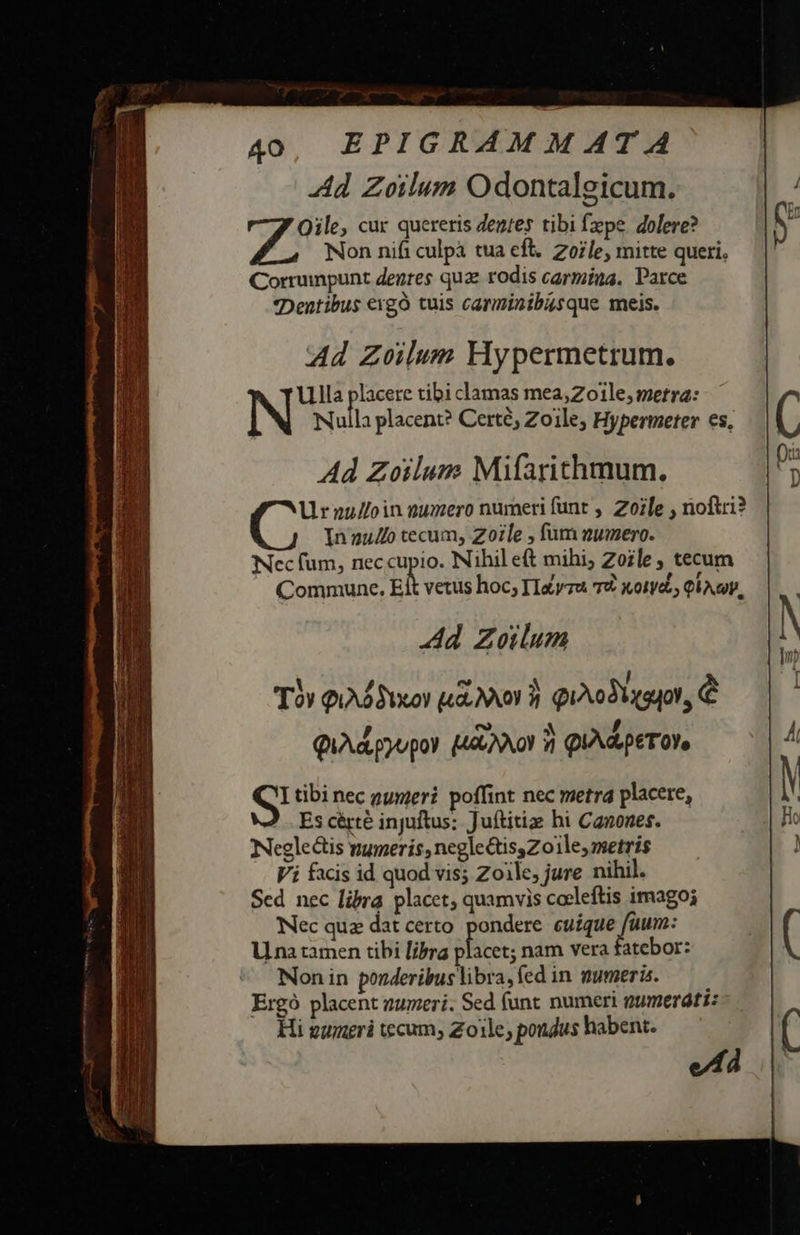 40 EPIGRAMMATA
Ad Zoilum Odontalgicum.
ZOile, cur quereris dentes tibi sæpe dolere?
Non nisi culpâ tua est. Zoile, mitte queri.
Corrumpunt dentes quæ rodis carmina. Parce
Dentibus ergò tuis carminibúsque meis.
Ad Zoilum Hypermetrum.
NUlla placere tibi clamas mea, Zoile, metra:
Nulla placent? Certè, Zoile, Hypermeter es.
Ad Zoilum Misarithmum.
CUr nullo in numero numeri sunt, Zoile, nostri?
In nullo tecum, Zoile, sum numero.
Nec sum, nec cupio. Nihil est mihi, Zoile, tecum
Commune. Est vetus hoc, Πάντα τὰ κοινὰ φίλων.
Ad Zoilum
Τὸν φιλόδικον μᾶλλον ἢ φιλοδίκαιον, &
φιλάργυρον μᾶλλον ἢ φιλάρετον.
SI tibi nec numeri possint nec metra placere,
Es certè injustus: Justitiæ hi Canones.
Neglectis numeris, neglectis, Zoile, metris
Vi facis id quod vis; Zoile, jure nihil.
Sed nec libra placet, quamvìs cœlestis imago;
Nec quæ dat certo pondere cuique suum:
Una tamen tibi libra placet; nam vera fatebor:
Non in ponderibus libra, sed in numeris.
Ergò placent numeri. Sed sunt numeri numerati:
Hi numeri tecum, Zoile, pondus habent.
Ad